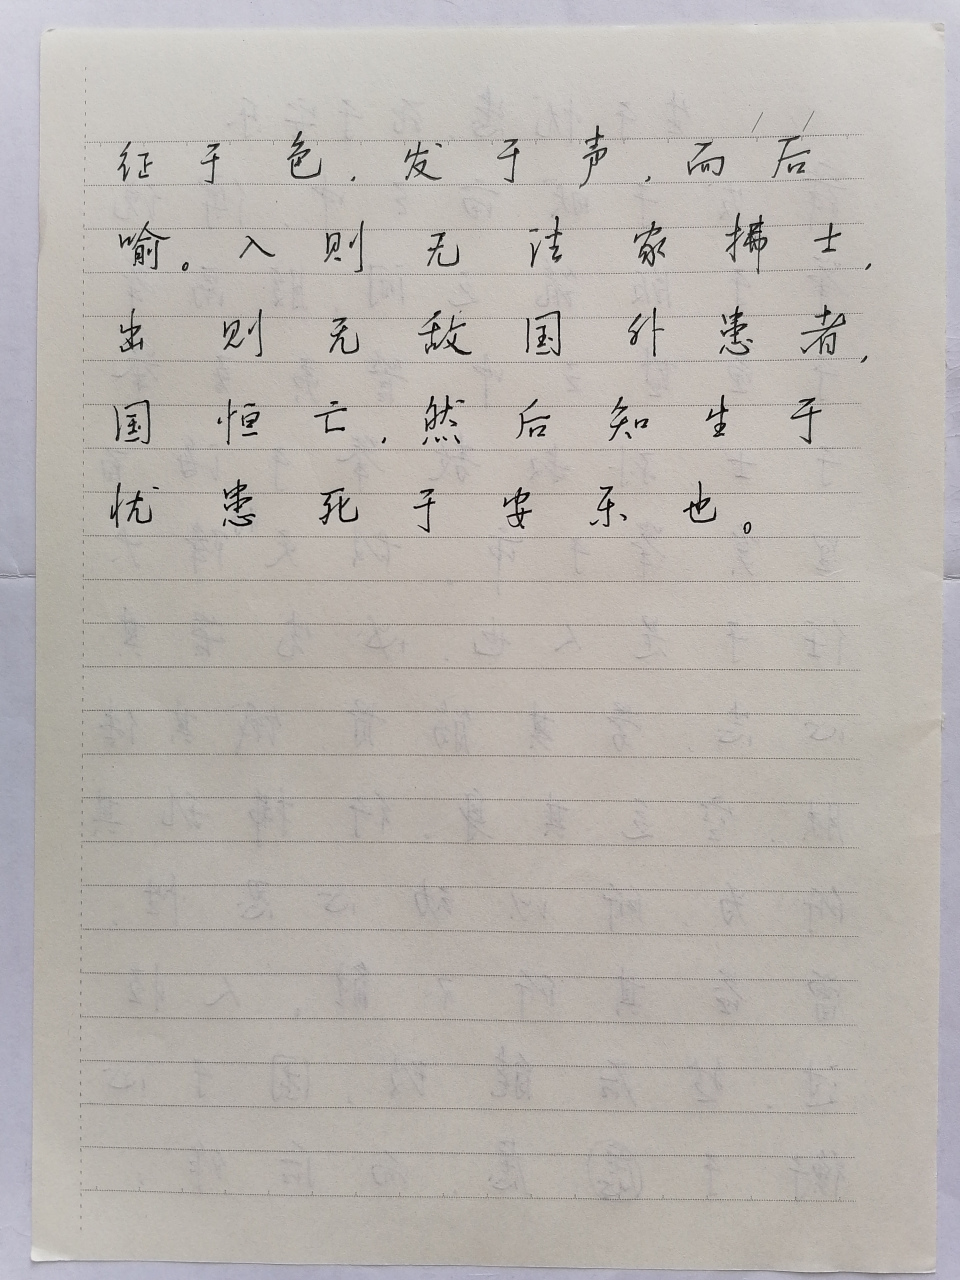 征于色,发于声,而后
喻。入则无法家拂士,
出则无敌国外患者,
国恒亡,然后知生于
忧患死于安乐也。